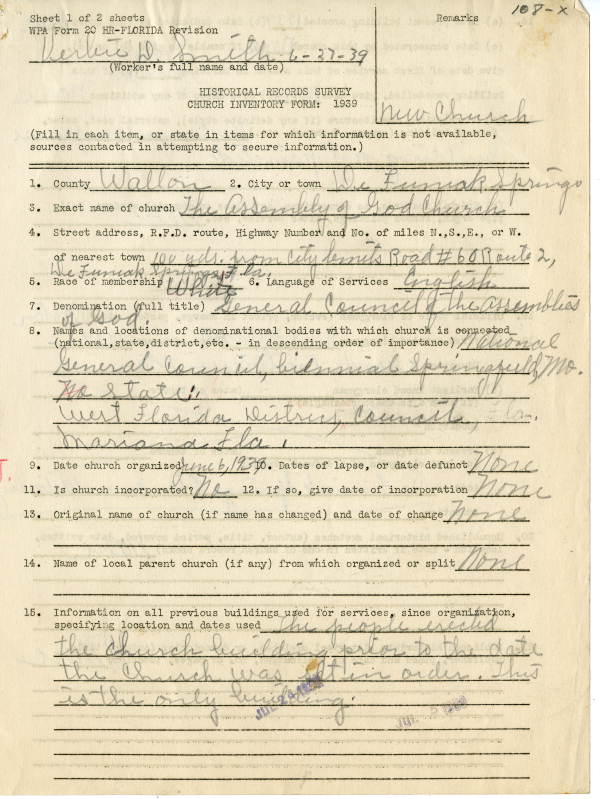 108-X
Sheet 1 of 2 sheets
Remarks
WPA Form 20 HR-FLORIDA Revision
D. Smith 6-27-39
(Worker's full name and date)
HISTORICAL RECORDS SURVEY
CHURCH INVENTORY FORM: 1939
New Church
(Fill in each item, or state in items for which information is not available,
sources contacted in attempting to secure information.)
1. County Walton 2. City or town De Funiak Springs
3. Exact name of church The Assembly of God Church
4. Street address, R.F.D. route, Highway Number and No. of miles N.,S.,E., or W.
of nearest town 100 yds. from City limits Road #60 Route 2,
De Funiak Springs, Fla.
5. Race of membership White 6. Language of Services English
7. Denomination (full title) General Council of the Assemblies
of God.
8. Names and locations of denominational bodies with which church is connected
(national,state,district,etc. - in descending order of importance) National
General Council, biennial Springfield, Mo.
No State:
West Florida District, Council, Fla.
Mariana Fla.
9. Date church organized June 6, 1939 10. Dates of lapse, or date defunct None
11. Is church incorporated? No 12. If so, give date of incorporation None
13. Original name of church (if name has changed) and date of change None
14. Name of local parent church (if any) from which organized or split None
15. Information on all previous buildings used for services, since organization,
specifying location and dates used The people erected
the church building prior to the date
the Church was set in order. This
is the only building.